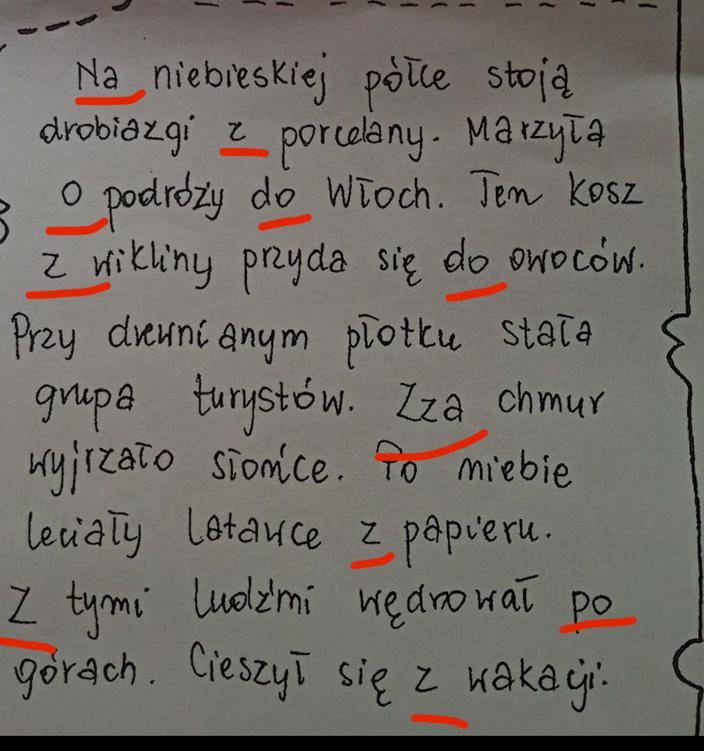 Na niebieskiej półce stoją
drobiazgi z porcelany. Marzyła
o podróży do Włoch. Ten kosz
z wikliny przyda się do owoców.
Przy drewnianym płotku stała
grupa turystów. Zza chmur
wyjrzało słońce. Po niebie
leciały latawce z papieru.
Z tymi ludźmi wędrował po
górach. Cieszył się z wakacji.